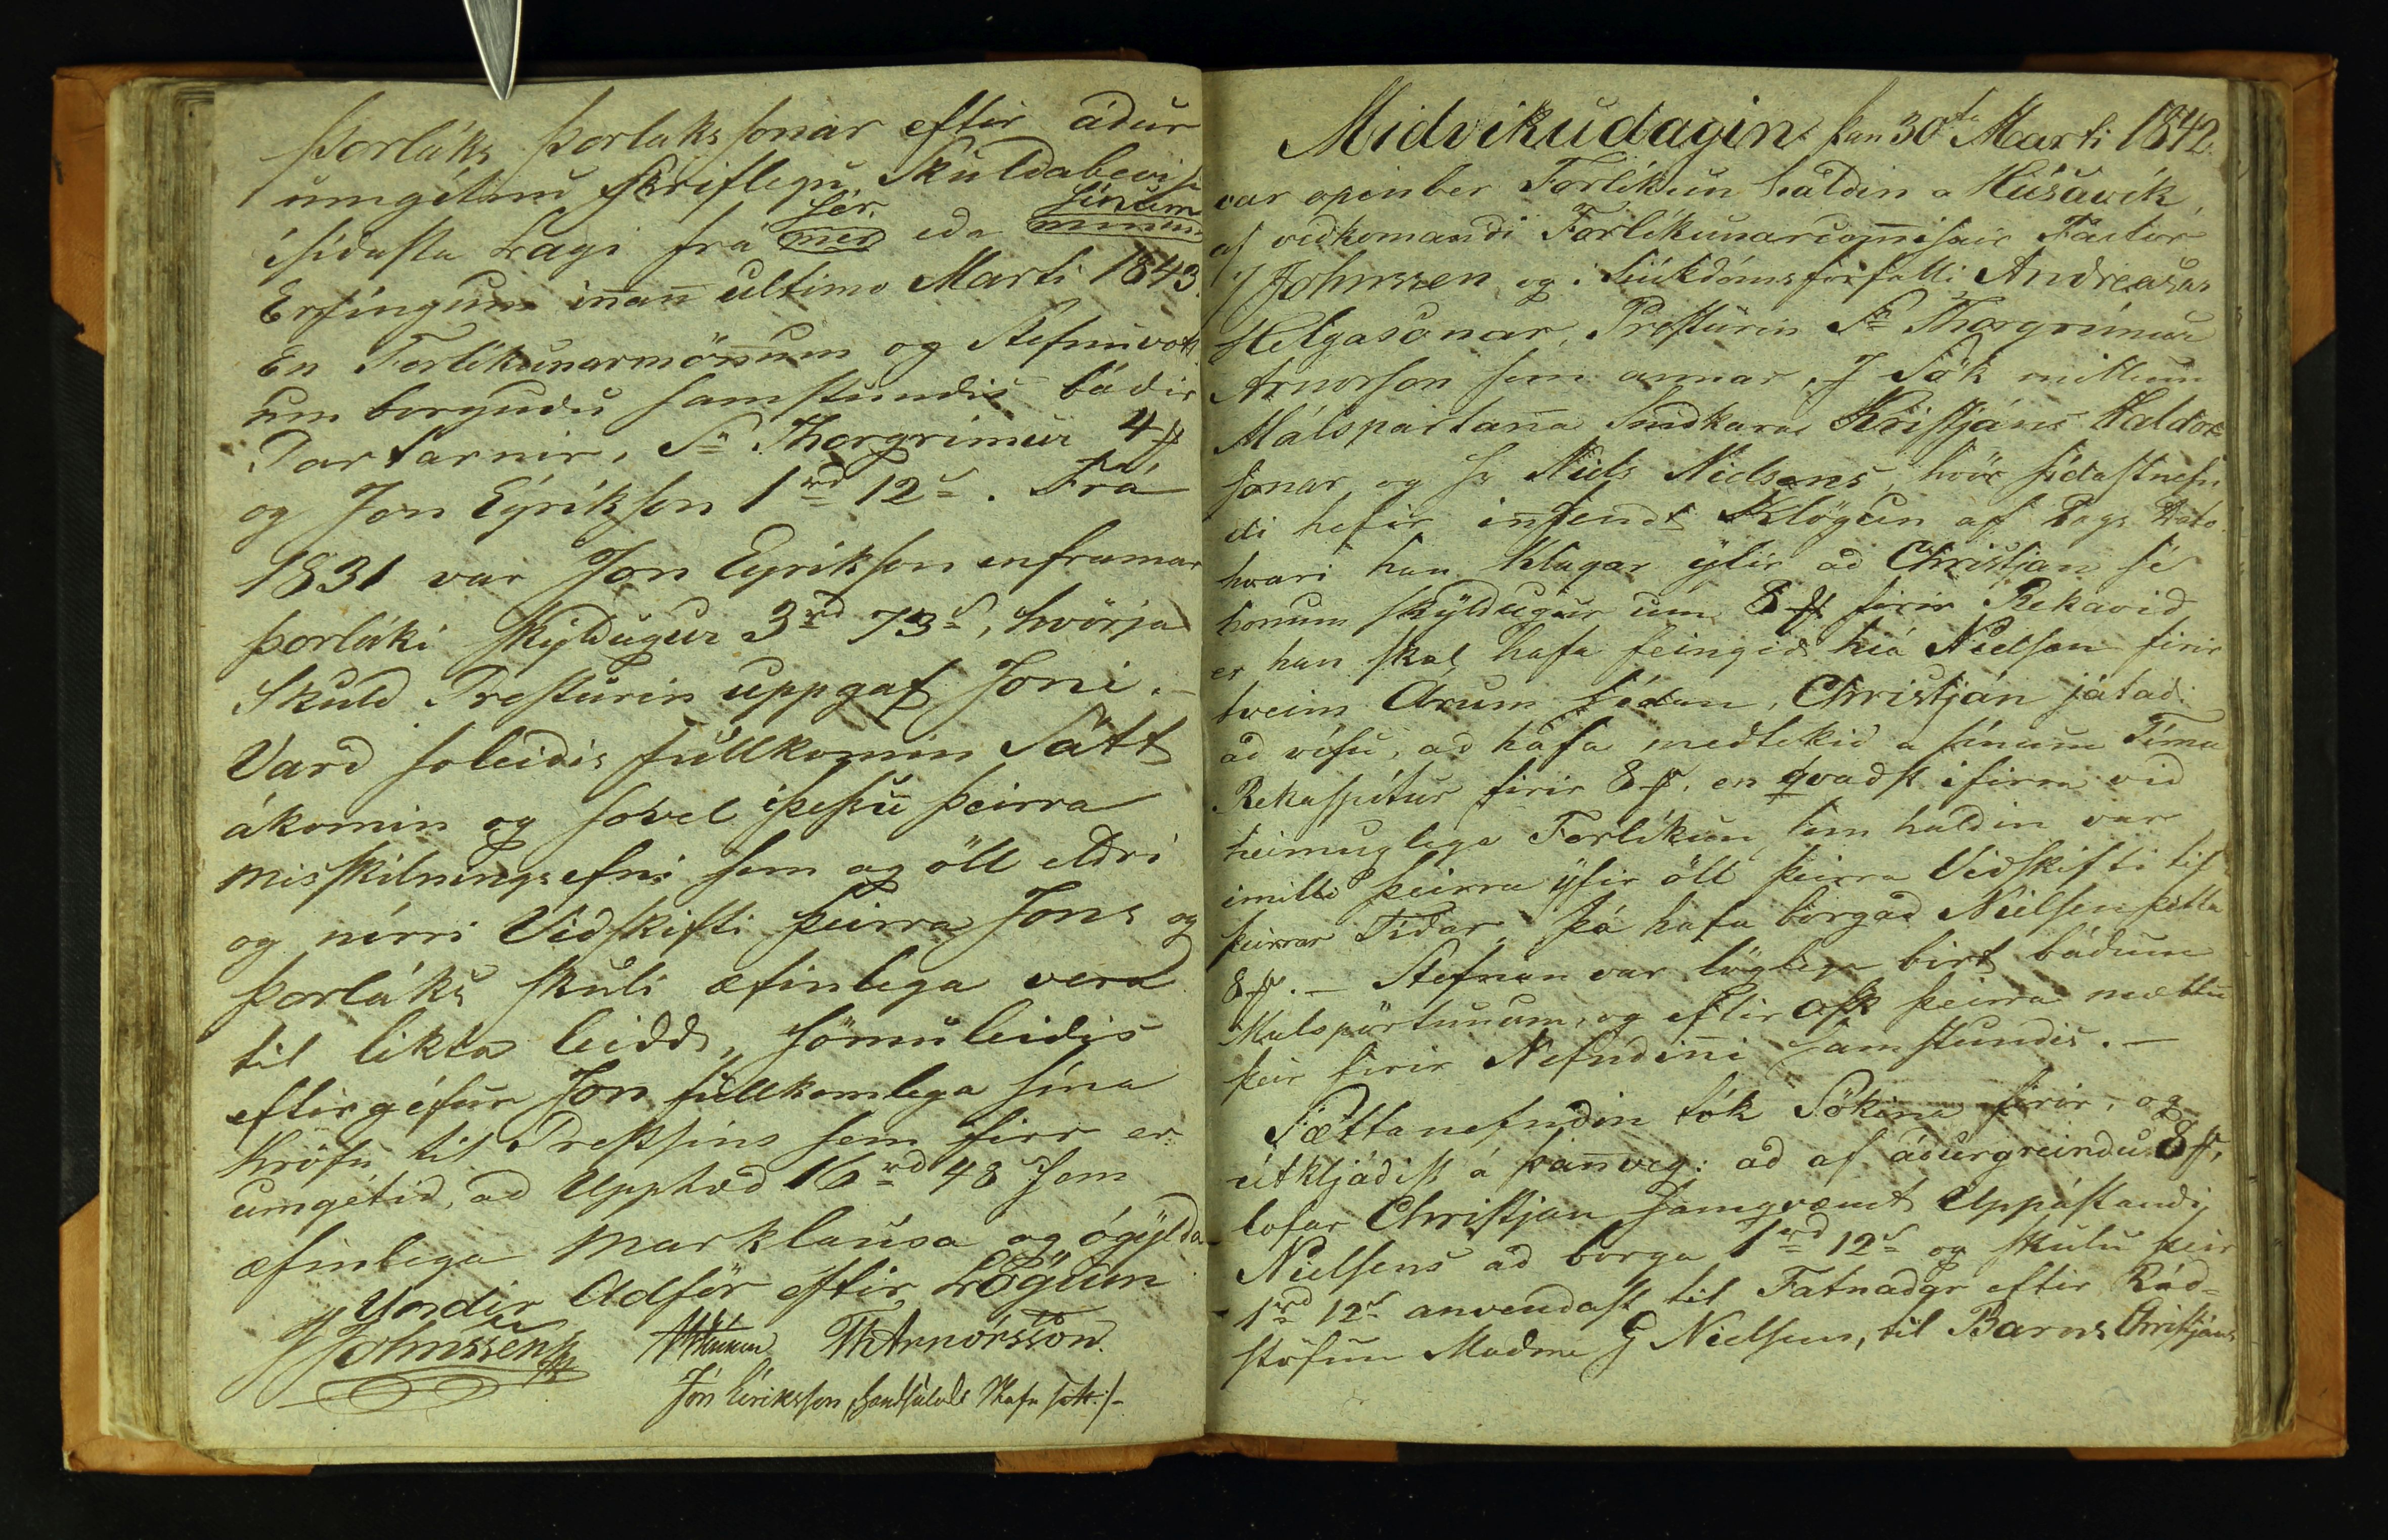 Þorláks Þorlakssonar eftir ádur
umgétnu skriflegu Skuldabevise
sér sínum
í sídasta Lagi frá mér eda mínum
Erfíngum inan ultimo Marti 1843.
En Forlíkunarmönum og Stefnuvott
um borgudu samstundis bádir
Partarnir, Sr Thorgrímur 4 ſſ
og Jon Eýríkson 1rd 12s. Frá
1831 var Jon Eyrikson enframar
Þorláki skýldugur 3rd 73s, hvörja
Skuld Presturin uppgaf Joni. –
Vard soleidis fullkomin Sátt
ákomin og sovel í þessu þeirra
misskilnings efni sem og öll eldri
og nírri Vidskifti þeirra Jons og
Þorláks skuli æfinlega vera
til likta leidd, sömuleidis
eftirgéfur Jon fullkomlega sína
kröfu til Prestsins sem firr er
umgétid, ad Upphæd 16rd 48 sem
æfinlega marklausa og ógýlda
Undir Adför eftir Lögum
JJohnssen ThArnórsson.
Jón Eiríksson handsalade
Midvikudagin þan 30ta Marti 1842.
var opinber Forlíkun haldin a Húsavík,
af vidkomandi Forlíkunarcomisair Factor
JJohnssen og í Siúkdóms forfalli Andreasar
Helgasonar, Presturin Sr Thorgrímur
Arnorson sem annar, J Sök millum
Málspartana Snidkara Kristjáns Haldor
sonar og hr Niels Nielsens, hvör sídastnefn
di hefir insendt Klögun af Dags Dato
hvari han klagar ýfir ad Christjan sé
honum skýldugur um 8 ſſ firir Rekavid
er han skal hafa feingid hiá Nielsen firir
tveim Arum sídan, Christján játadi
ad vísu, ad hafa medtekid a sínum Tíma
Rekaspítur firir 8 ſſ. en qvadst í firra vid
heimuglega Forlíkun sem haldin var
imilli þeirra ýfir öll þeirra Vidskifti til
þeirrar Tídar, þá hafa borgad Nielsen þetta
8 ſſ. – Stefnan var löglega birt bádum
Malspörtunum, og eftir Osk þeirra mættu
þeir firir Nefndini samstundis. –
Sættanefndin tók Sökina firir, og
útkljádist á þanveg: ad af ádurgreindu 8 ſſ,
lofar Christjan samqvæmt Uppástandi
Nielsens ad borga 1rd 12s og skulu þeir
1rd 12s anvendast til Fatnadar eftir Rád-
stöfun Madme G Nielsen, til Barns Christjáns